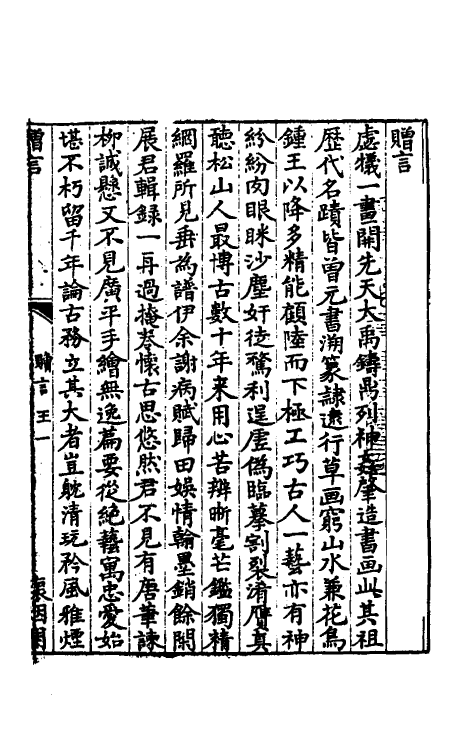 贈言
虙犧一畫開先天大禹鑄鼎列神姦肇造書畫此其祖
歷代名蹟皆曾元書溯篆隸逮行草画窮山水兼花鳥
鍾王以降多精能顧陸而下極工巧古人一藝亦有神
紛紛肉眼眯沙塵奸徒騖利逞虛偽臨摹割裂淆贋真
聽松山人最博古數十年来用心苦辨晰毫芒鑑獨精
網羅所見垂為譜伊余謝病賦歸田娛情翰墨銷餘閑
展君輯録一再過掩卷懷古思悠然君不見有唐筆諫
柳誠懸又不見廣平手繪無逸篇要從絕藝寓忠愛始
堪不朽留千年論古務立其大者豈躭清玩矜風雅煙
贈言
贈言 王 一